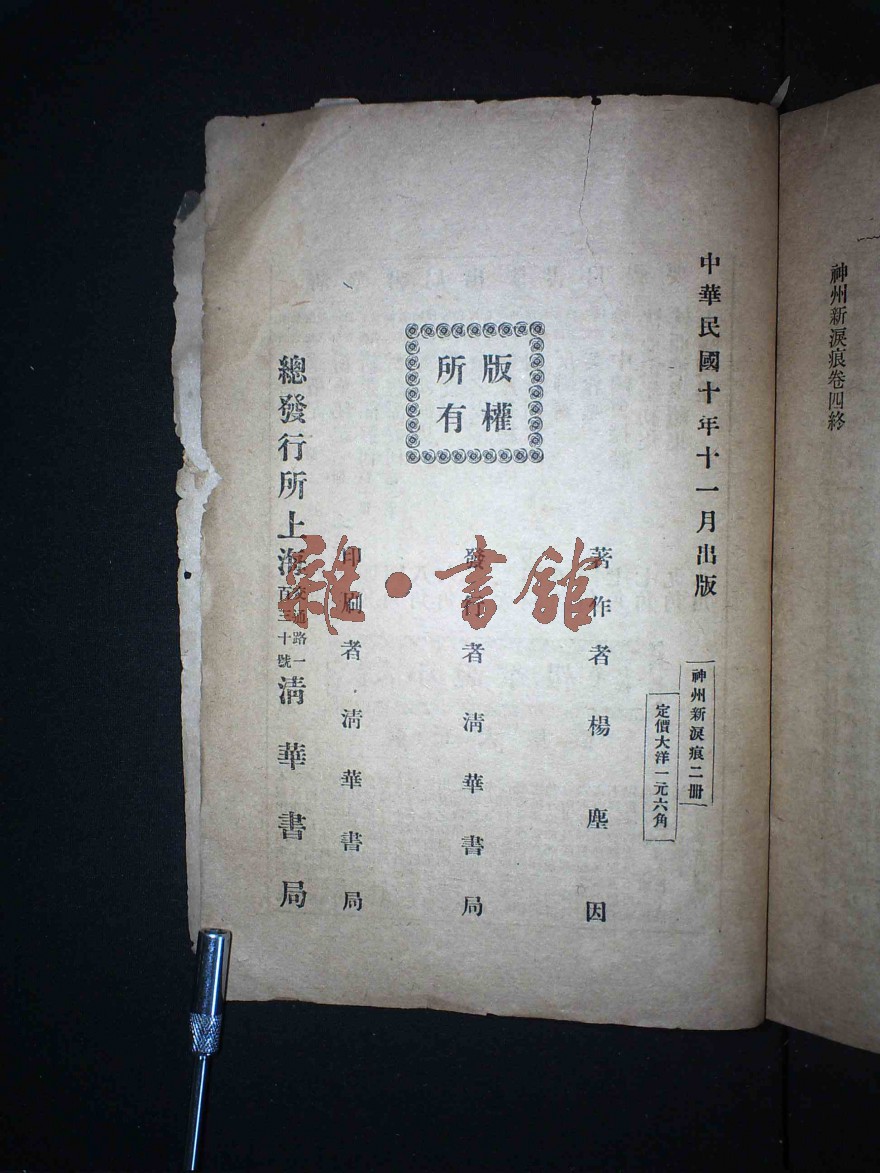 神州新淚痕卷四終
中華民國十年十一月出版
神州新淚痕二冊
定價大洋一元六角
著作者楊塵因
發行者清華書局
版權
所有
印刷者清華書局
總發行所上海交通路一百三十號清華書局
雜·書館